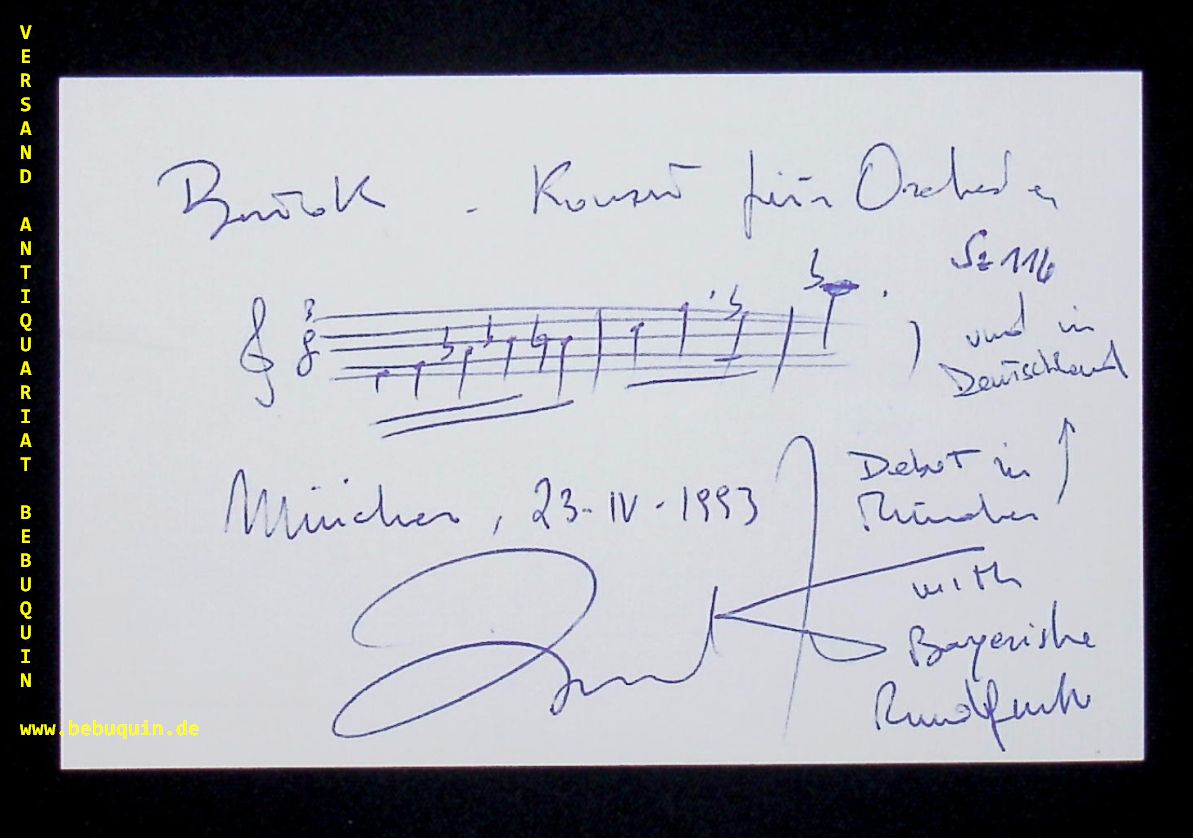 VERSAND ANTIQUARIAT BEBUQUIN
www.bebuquin.de
Bartók - Konzert für Orchester
Sz 116
und in
Deutschland
München, 23-IV-1993
Debut in
München
with
Bayerische
Rundfunk